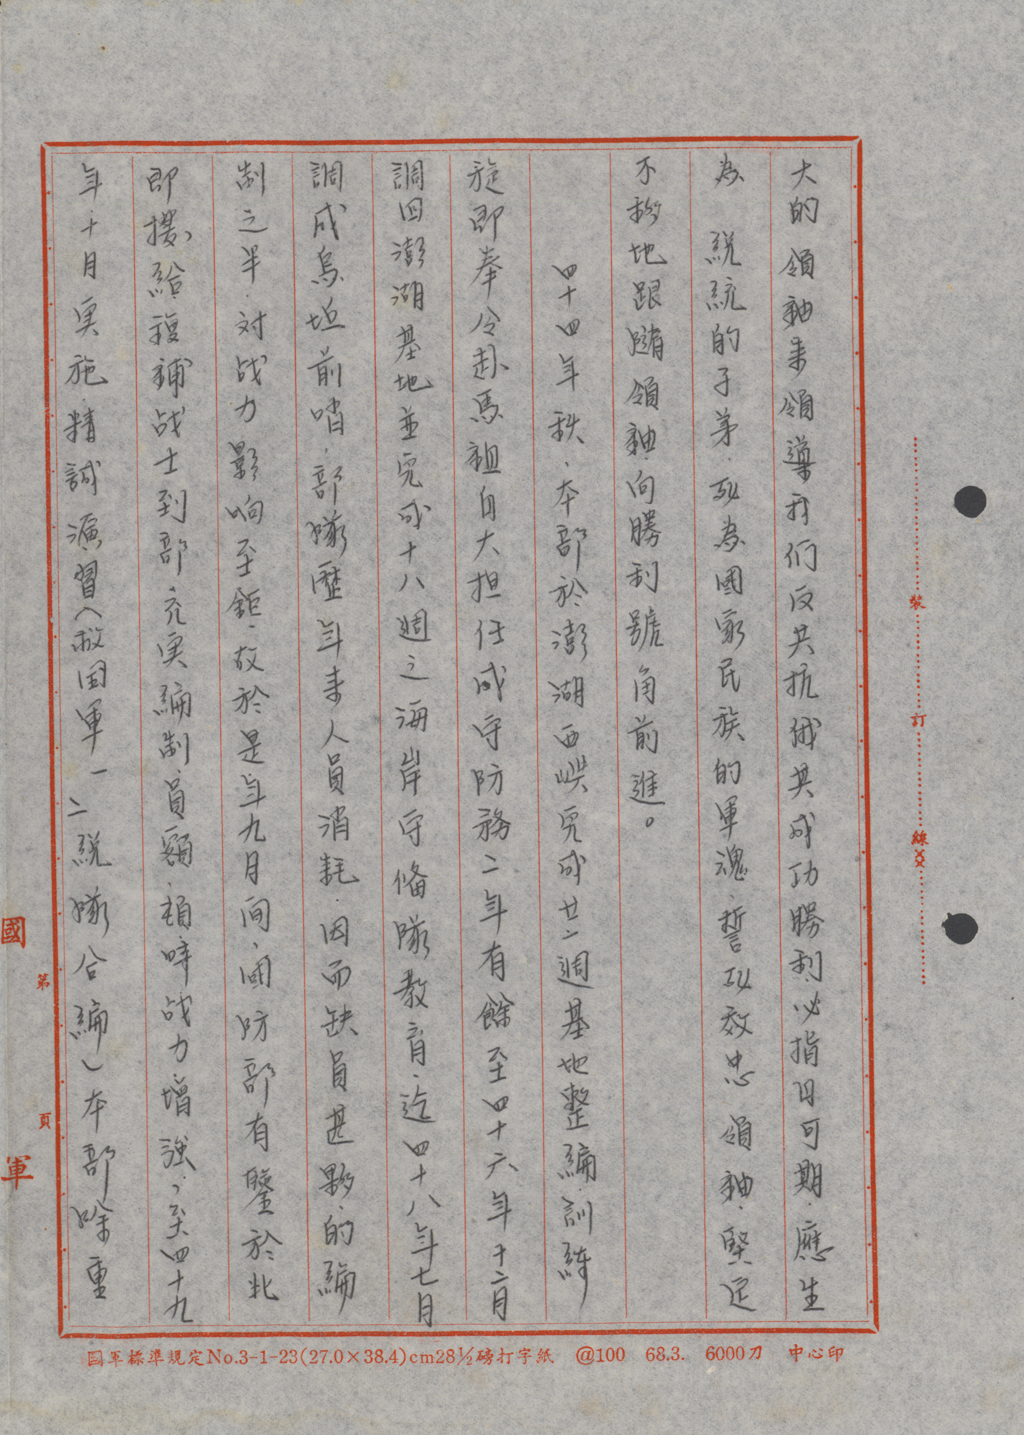 大的領袖來領導我们反共抗俄其成功勝利必指日可期.應生
為　総統的子弟.死為國家民族的軍魂.誓死效忠　領袖.堅定
不移地跟隨領袖向勝利號角前進。
四十四年秋.本部於澎湖西嶼完成廿二週基地整編訓練
旋即奉令赴馬祖自大担任戍守防務二年有餘至四十六年十二月
調回澎湖基地並完成十八週之海岸守俻隊教育.迄四十八年七月
調戍烏坵前哨.部隊歷年來人員消耗.因而缺員甚夥.約編
制之半.対战力影响至鉅.故於是年九月间.囯防部有鑒於此
即撥給複補战士到部.充実編制員額.頓時战力增強、至四十九
年十月実施精誠演習(救国軍一二総隊合編)本部除重
國軍
第　頁
裝訂線
国軍標準規定No.3-1-23(27.0×38.4)cm28½磅打字紙　@100　68.3.　6000刀　中心印